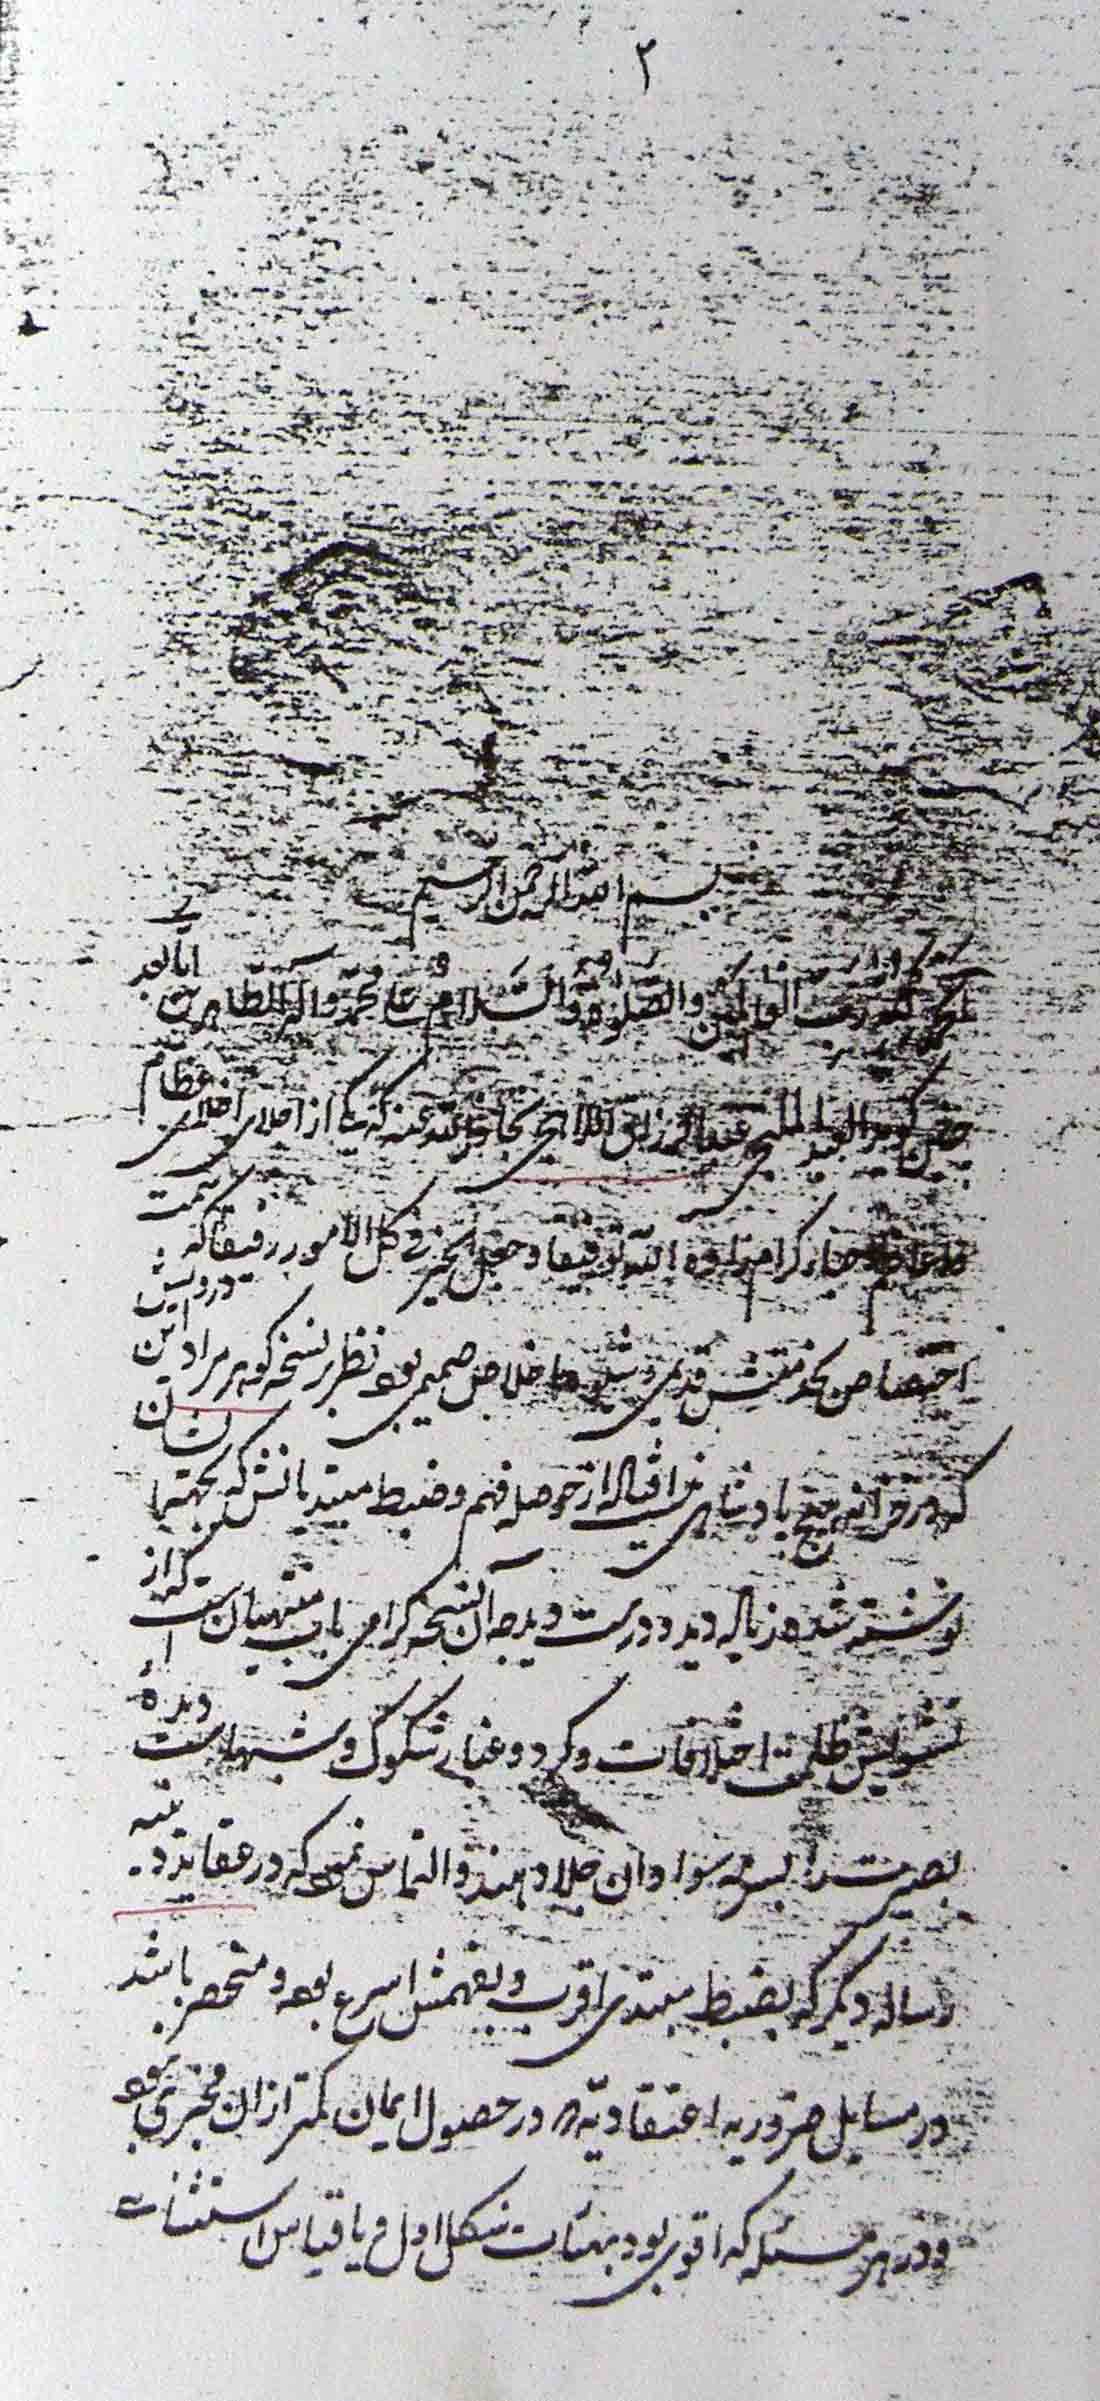 ۲
بسم الله الرحمن الرحیم
الحمد لله رب العالمین والصلوة والسلام علی محمد وآله الطاهرین اما بعد
چنین گوید العبد الملتجی عبدالرزاق اللاهیجی که یکی از اجلای اخلای عظام
الله توفیقا و جعل الخیر فی کل الامور رفیقا که بسمت
اختصاص قدیمی و اخلاص صمیمی بود نظر بر نسخه گوهر مراد این درویش
که در خزانه از حوصله فهم و ضبط مبتدیانش که بجهة ایشان
نوشته شده زیاده دیده و درست دیده چه آن نسخه گرامی باب منتهیان است که از
تشویش ظلمت اختلافات و گرد و غبار شکوک و شبهات دیده
بصیرت را بسرمه سواد آن جلا دهند و التماس نمود که در عقاید دینیه
رساله دیگر که بضبط مبتدی اقرب و بفهمش اسرع بود و منحصر باشد
در مسایل ضروریه اعتقادیه که در حصول ایمان کمتر از آن مجزی نبود
و در هر مسئله که اقوی بود بهیئات شکل اول و یا قیاس استثنائی